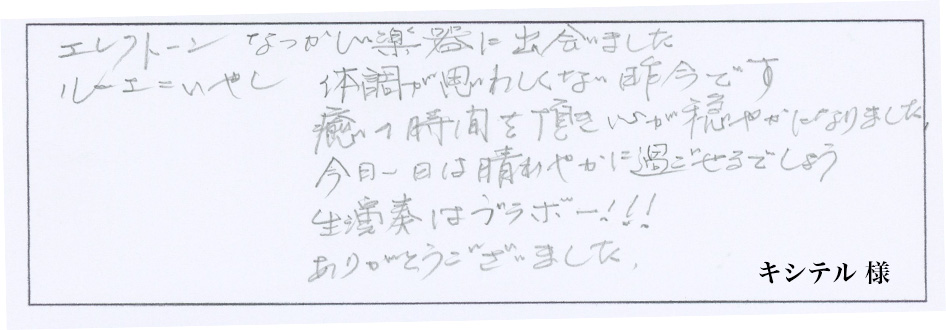 エレクトーン なつかしい楽器に出会いました
ルーエ=いやし 体調が思わしくない昨今です
癒しの時間を頂き心が穏やかになりました。
今日一日は晴れやかに過ごせるでしょう
生演奏はブラボー!!!
ありがとうございました。
キシテル 様